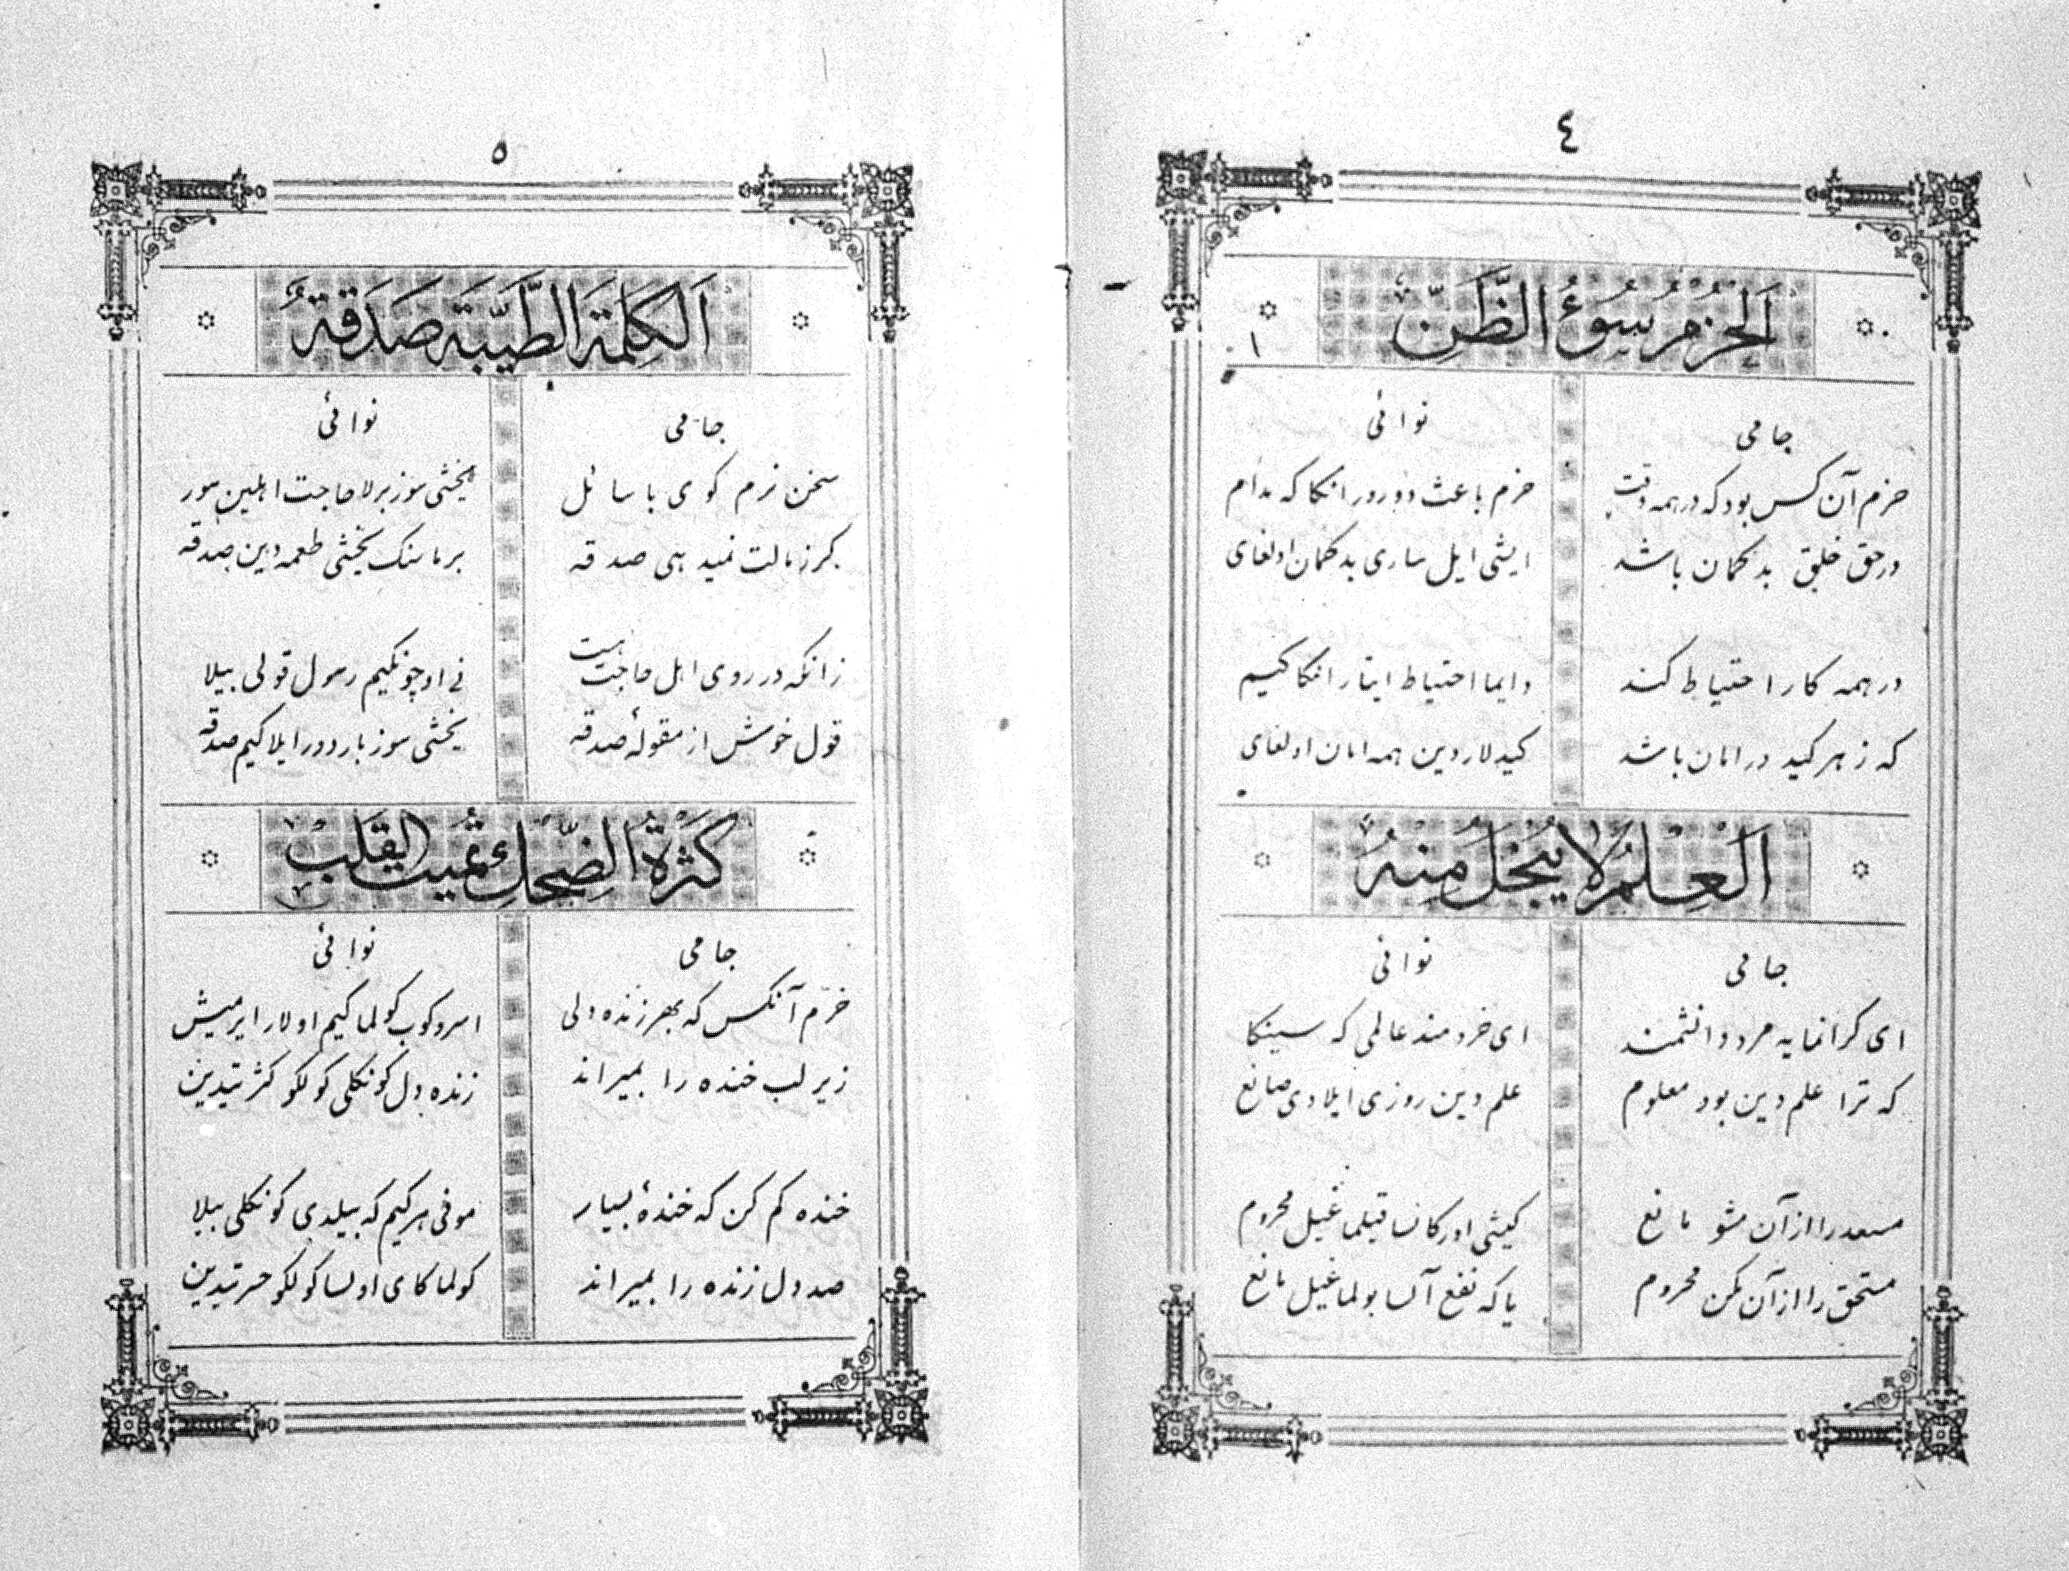 ٤
اَلحَزْمُ سُوءُ الظَّنِّ
جامی
حزم آن کس بود که در همه وقت
در حق خلق بدکمان باشد
در همه کار احتیاط کند
که ز هر کید در امان باشد
نوائی
حزم باعث دورور انکا که مدام
ایشی ایل ساری بدکمان اولغای
دایما احتیاط ایتار انکا کیم
کیدلاردین همه امان اولغای
اَلعِلمُ لَا يُحِلُّ مَنعُهُ
جامی
ای کرانمایه مرد دانشمند
که ترا علم دین بود معلوم
مستعد را از آن مشو مانع
مستحق را از آن مکن محروم
نوائی
ای خردمند عالمی که سینکا
علم دین روزی ایلادی صانع
کیشی اورکانسا قیلماغیل محروم
یا که نفع آلسا بولماغیل مانع
٥
اَلكَلِمَةُ الطَّيِّبَةُ صَدَقَةٌ
جامی
سخن نرم کوی با سائل
کر ز مالت نمیدهی صدقه
زانکه در روی اهل حاجت هست
قول خوش از مقولهٔ صدقه
نوائی
یخشی سوز برلا حاجت اهلین سور
برماسنک یخشی طعمه دین صدقه
نی اوچونکیم رسول قولی بیلا
یخشی سوز باردور ایلاکیم صدقه
كَثْرَةُ الضِّحكِ تُمِيتُ القَلبَ
جامی
خرّم آنکس که بهر زنده دلی
زیر لب خنده را بمیراند
خنده کم کن که خندهٔ بسیار
صد دل زنده را بمیراند
نوائی
اسروکوب کولماکیم اولار ایرمیش
زنده دل کونکلی کولکو کثرتیدین
موفی هر کیم که بیلدی کونکلی بیلا
کولماکای اولسا کولکو حسرتیدین